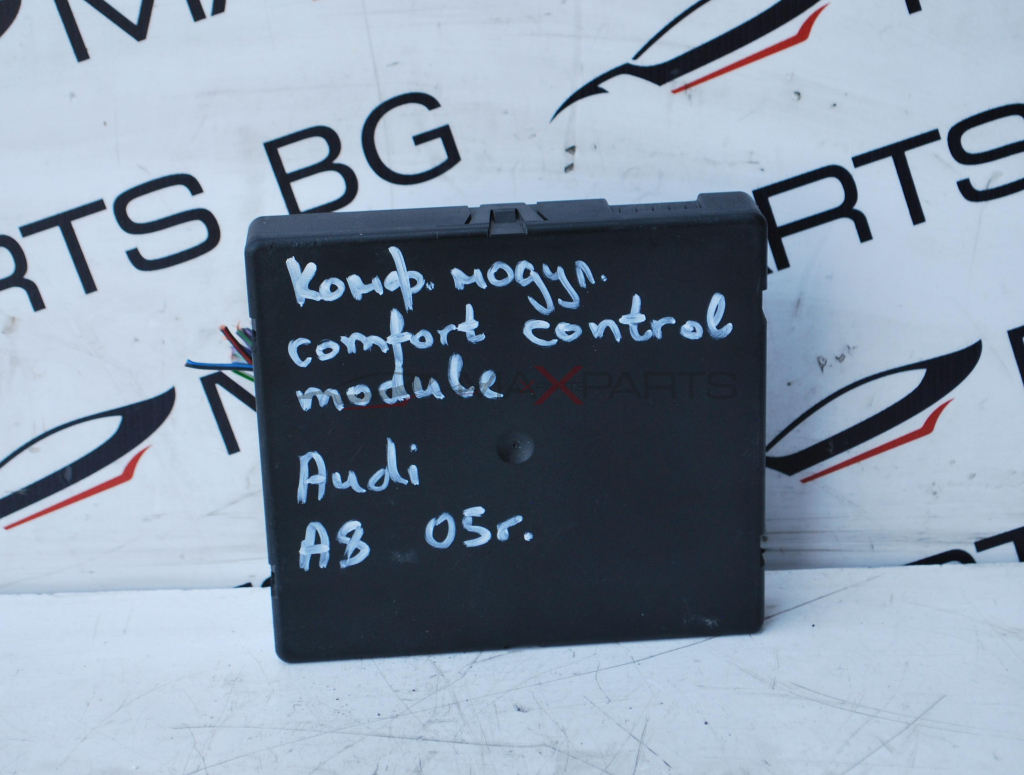 MAXPARTS
RTS BG
PARTS
Комф. модул.
comfort control
module
MAXPARTS
Audi
A8 05г.